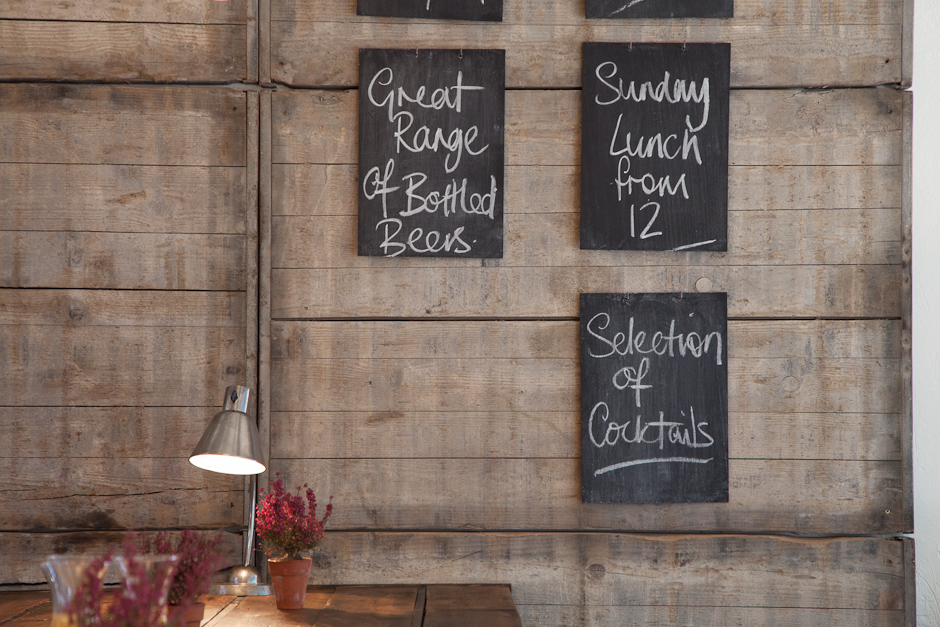 Great
Range
Of Bottled
Beers.
Sunday
Lunch
from
12
Selection
of
Cocktails